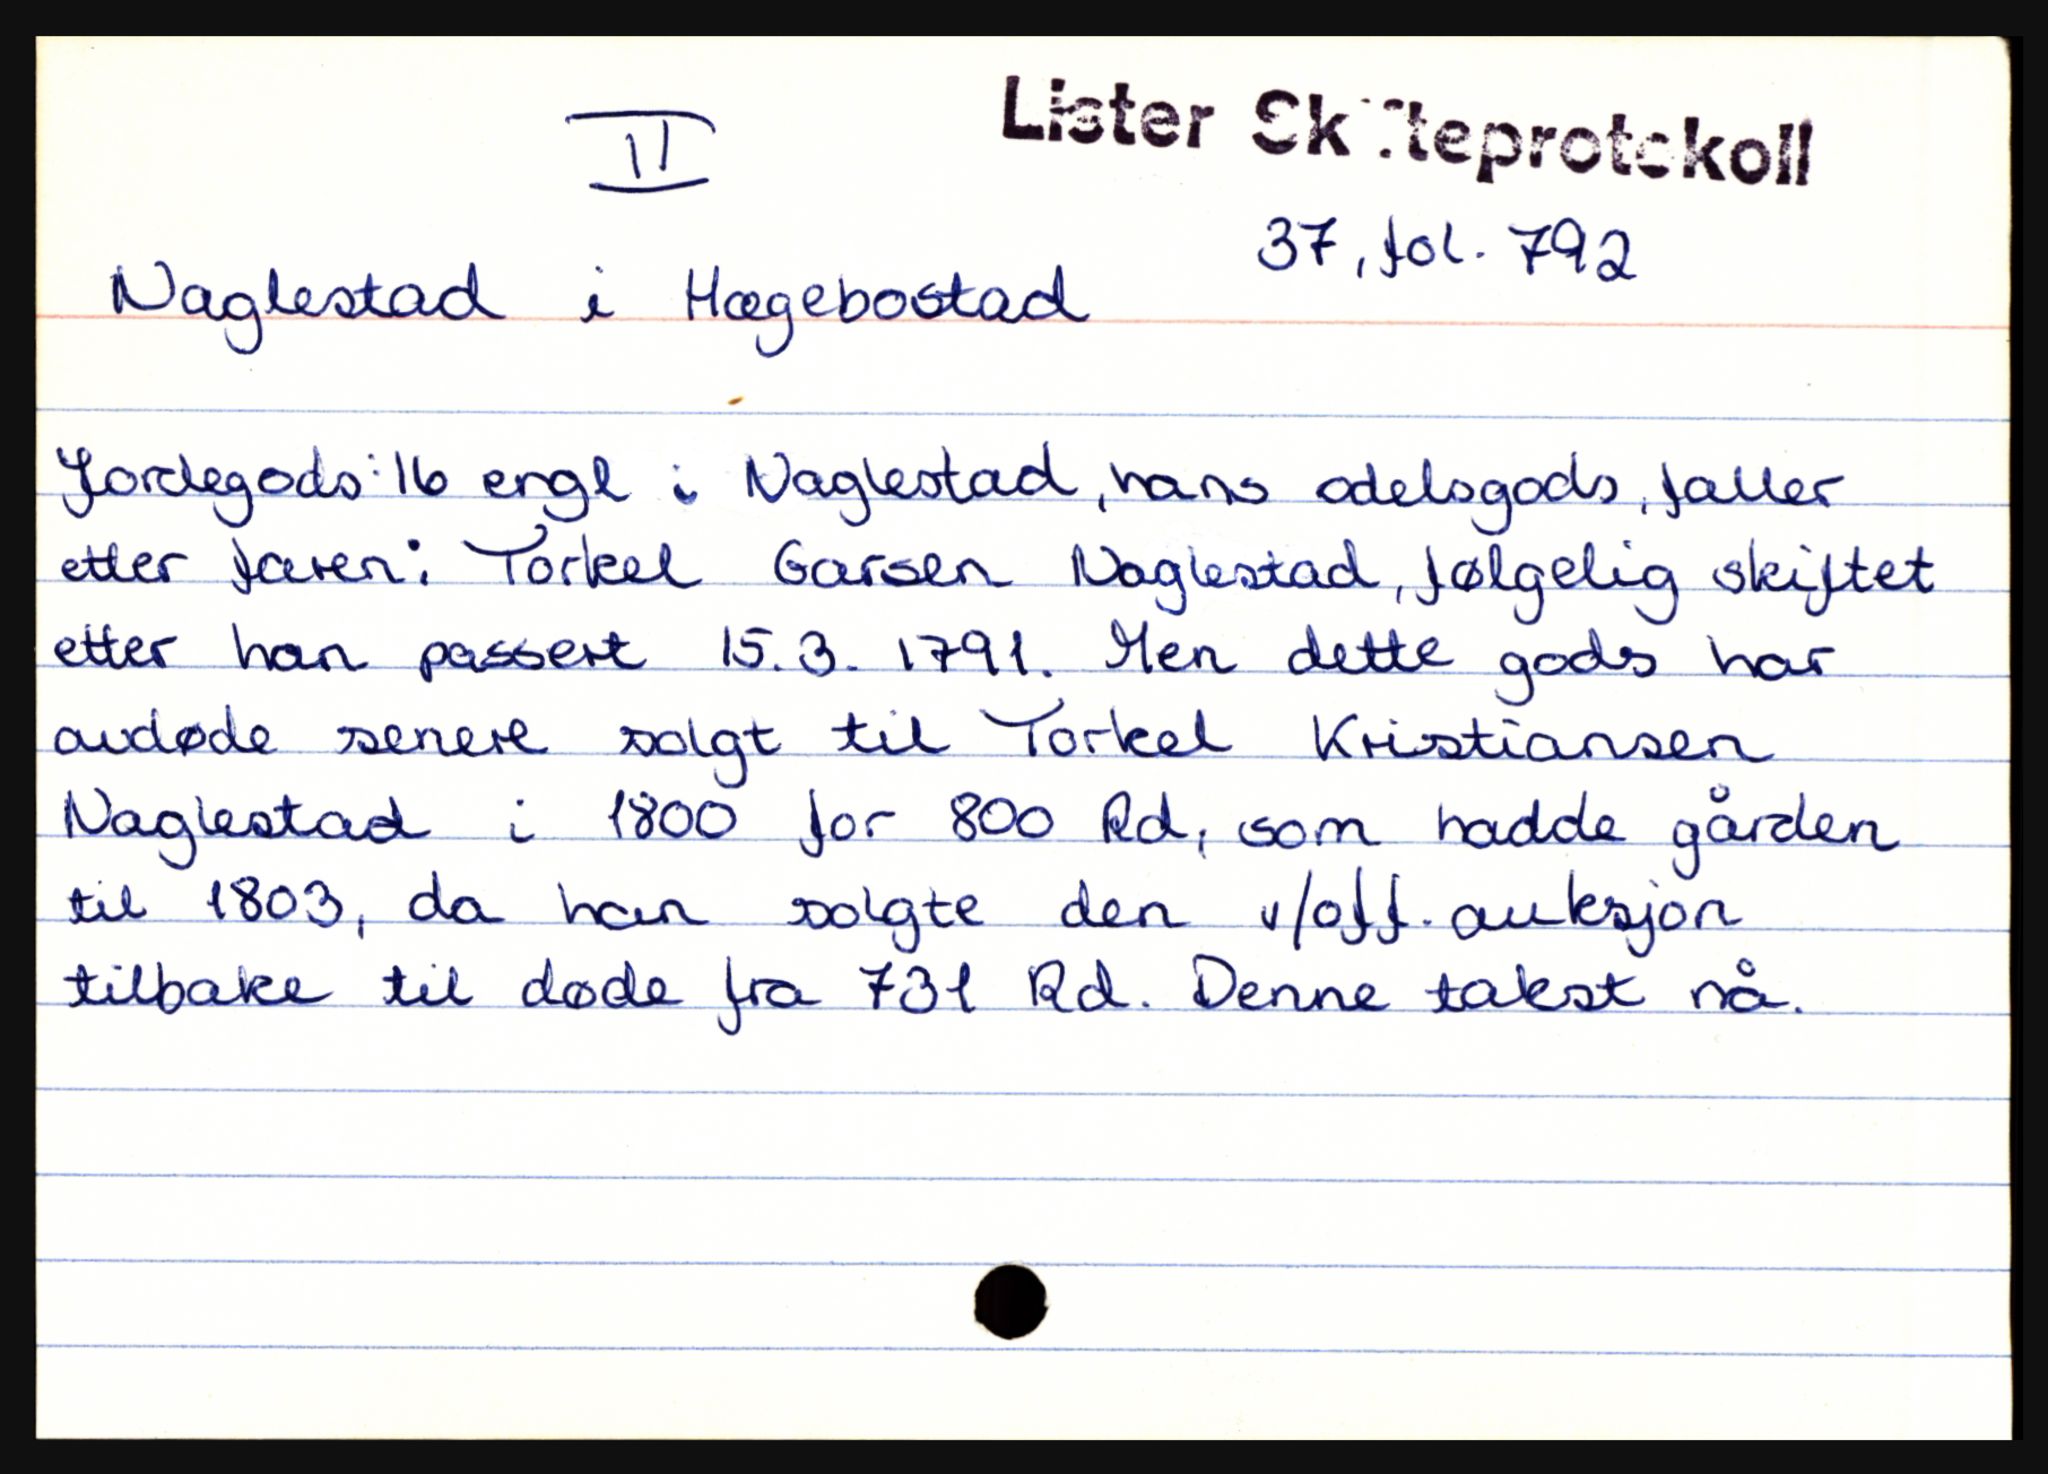 II
Lister Skifteprotokoll
37, fol. 792
Naglestad i Hægebostad
Jordegods: 16 engl i Naglestad, hans odelsgods, faller
etter faren: Torkel Garsen Naglestad, følgelig skiftet
etter han passert 15.3. 1791. Men dette gods har
avdøde senere solgt til Torkel Kristiansen
Naglestad i 1800 for 800 Rd, som hadde gården
til 1803, da han solgte den v/off. auksjon
tilbake til døde fra 731 Rd. Denne takst nå.